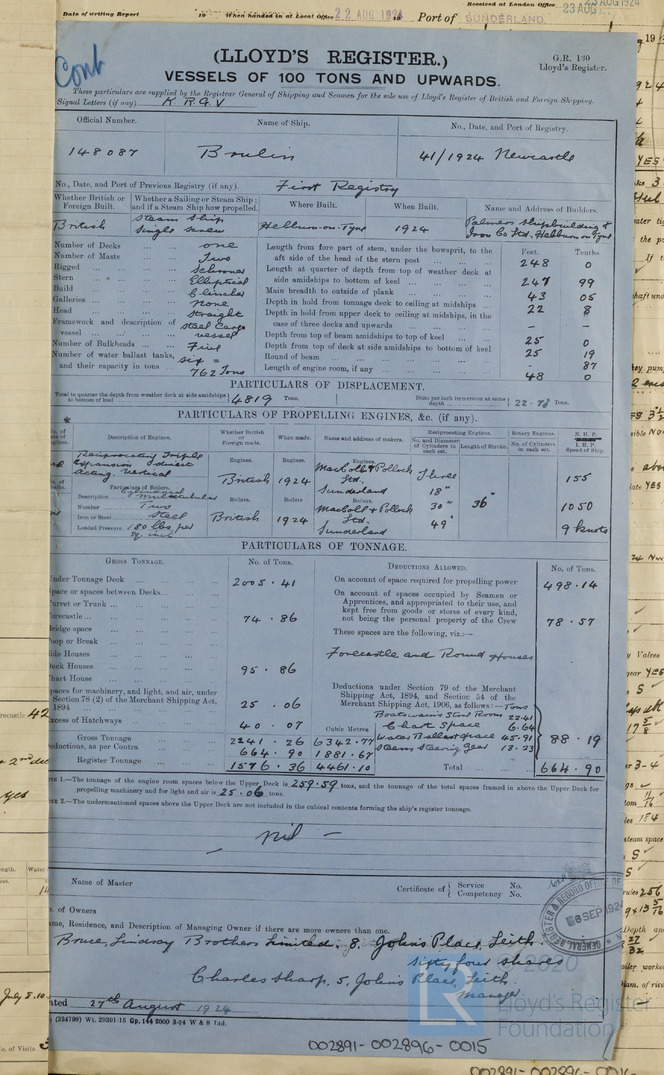 Date of writing Report 19 When handed in at Local Office 22 AUG 1924 Port of SUNDERLAND
Received at London Office 23 AUG 1924
Cont
(LLOYD'S REGISTER.)
G.R. 130
Lloyd's Register.
VESSELS OF 100 TONS AND UPWARDS.
These particulars are supplied by the Registrar General of Shipping and Seamen for the sole use of Lloyd's Register of British and Foreign Shipping.
Signal Letters (if any) K R G V
Official Number. Name of Ship. No., Date, and Port of Registry.
148087 Brulin 41/1924 Newcastle
No., Date, and Port of Previous Registry (if any). First Registry
Whether British or Foreign Built. Whether a Sailing or Steam Ship; and if a Steam Ship how propelled. Where Built. When Built. Name and Address of Builders.
British Steam Ship Single Screw Hebburn-on-Tyne 1924 Palmers Shipbuilding & Iron Co Ltd. Hebburn on Tyne
Number of Decks one
Number of Masts Two
Rigged Schooner
Stern Elliptical
Build Clincher
Galleries None
Head Straight
Framework and description of vessel Steel Cargo vessel
Number of Bulkheads Five
Number of water ballast tanks, and their capacity in tons six = 762 Tons
Feet. Tenths
Length from fore part of stem, under the bowsprit, to the aft side of the head of the stern post 248 0
Length at quarter of depth from top of weather deck at side amidships to bottom of keel 247 99
Main breadth to outside of plank 43 05
Depth in hold from tonnage deck to ceiling at midships 22 8
Depth in hold from upper deck to ceiling at midships, in the case of three decks and upwards - -
Depth from top of beam amidships to top of keel 25 0
Depth from top of deck at side amidships to bottom of keel 25 19
Round of beam - 87
Length of engine room, if any 48 0
PARTICULARS OF DISPLACEMENT.
Total to quarter the depth from weather deck at side amidships to bottom of keel 4819 Tons. Ditto per inch immersion at same depth 22.78 Tons.
PARTICULARS OF PROPELLING ENGINES, &c. (if any).
Description of Engines. Whether British or Foreign made. When made. Name and address of makers. Reciprocating Engines. No. and Diameter of Cylinders in each set. Length of Stroke. Rotary Engines. No. of Cylinders in each set. N.H.P. I.H.P. Speed of Ship.
Reciprocating Triple Expansion direct acting Vertical
Engines. British Engines. 1924 Engines. MacColl & Pollock Ltd. Sunderland Three 18" 30" 49" 36" 155 1050 9 knots
Particulars of Boilers.
Description Cylindrical Multitubular
Number Two
Iron or Steel Steel
Loaded Pressure 180 lbs per sq. inch
Boilers. British Boilers. 1924 Boilers. MacColl & Pollock Ltd. Sunderland
PARTICULARS OF TONNAGE.
GROSS TONNAGE. No. of Tons.
Under Tonnage Deck 2005.41
Space or spaces between Decks
Turret or Trunk
Forecastle 74.86
Bridge space
Poop or Break
Side Houses
Deck Houses 95.86
Chart House
Spaces for machinery, and light, and air, under Section 78 (2) of the Merchant Shipping Act, 1894 25.06
Excess of Hatchways 40.07
Cubic Metres
Gross Tonnage 2241.26 6342.77
Deductions, as per Contra 664.90 1881.67
Register Tonnage 1576.36 4461.10
DEDUCTIONS ALLOWED. No. of Tons.
On account of space required for propelling power 498.14
On account of spaces occupied by Seamen or Apprentices, and appropriated to their use, and kept free from goods or stores of every kind, not being the personal property of the Crew 78.57
These spaces are the following, viz.:—
Forecastle and Round Houses
Deductions under Section 79 of the Merchant Shipping Act, 1894, and Section 54 of the Merchant Shipping Act, 1906, as follows:— Tons
Boatswain's Store Room 22.41
Chart Space 6.64
Water Ballast Space 45.91
Steam Steering Gear 13.23
88.19
Total 664.90
1.—The tonnage of the engine room spaces below the Upper Deck is 259.59 tons, and the tonnage of the total spaces framed in above the Upper Deck for propelling machinery and for light and air is 25.06 tons.
2.—The undermentioned spaces above the Upper Deck are not included in the cubical contents forming the ship's register tonnage.
— nil —
Name of Master Certificate of { Service No. Competency No.
No. of Owners
Name, Residence, and Description of Managing Owner if there are more owners than one.
Bruce, Lindsay Brothers Limited. 8, John's Place, Leith.
Sixty four shares
Charles Sharp, 5, John's Place, Leith.
Manager
Dated 27th August 1924
(234798) Wt. 29391-15 Gp. 144 2000 3-24 W & S Ltd.
REGISTER & RECORD OFFICE OF
6 SEP 1924
GENERAL REGISTER
2020
LR Lloyd's Register Foundation
002891-002896-0015
002891-002896-0016